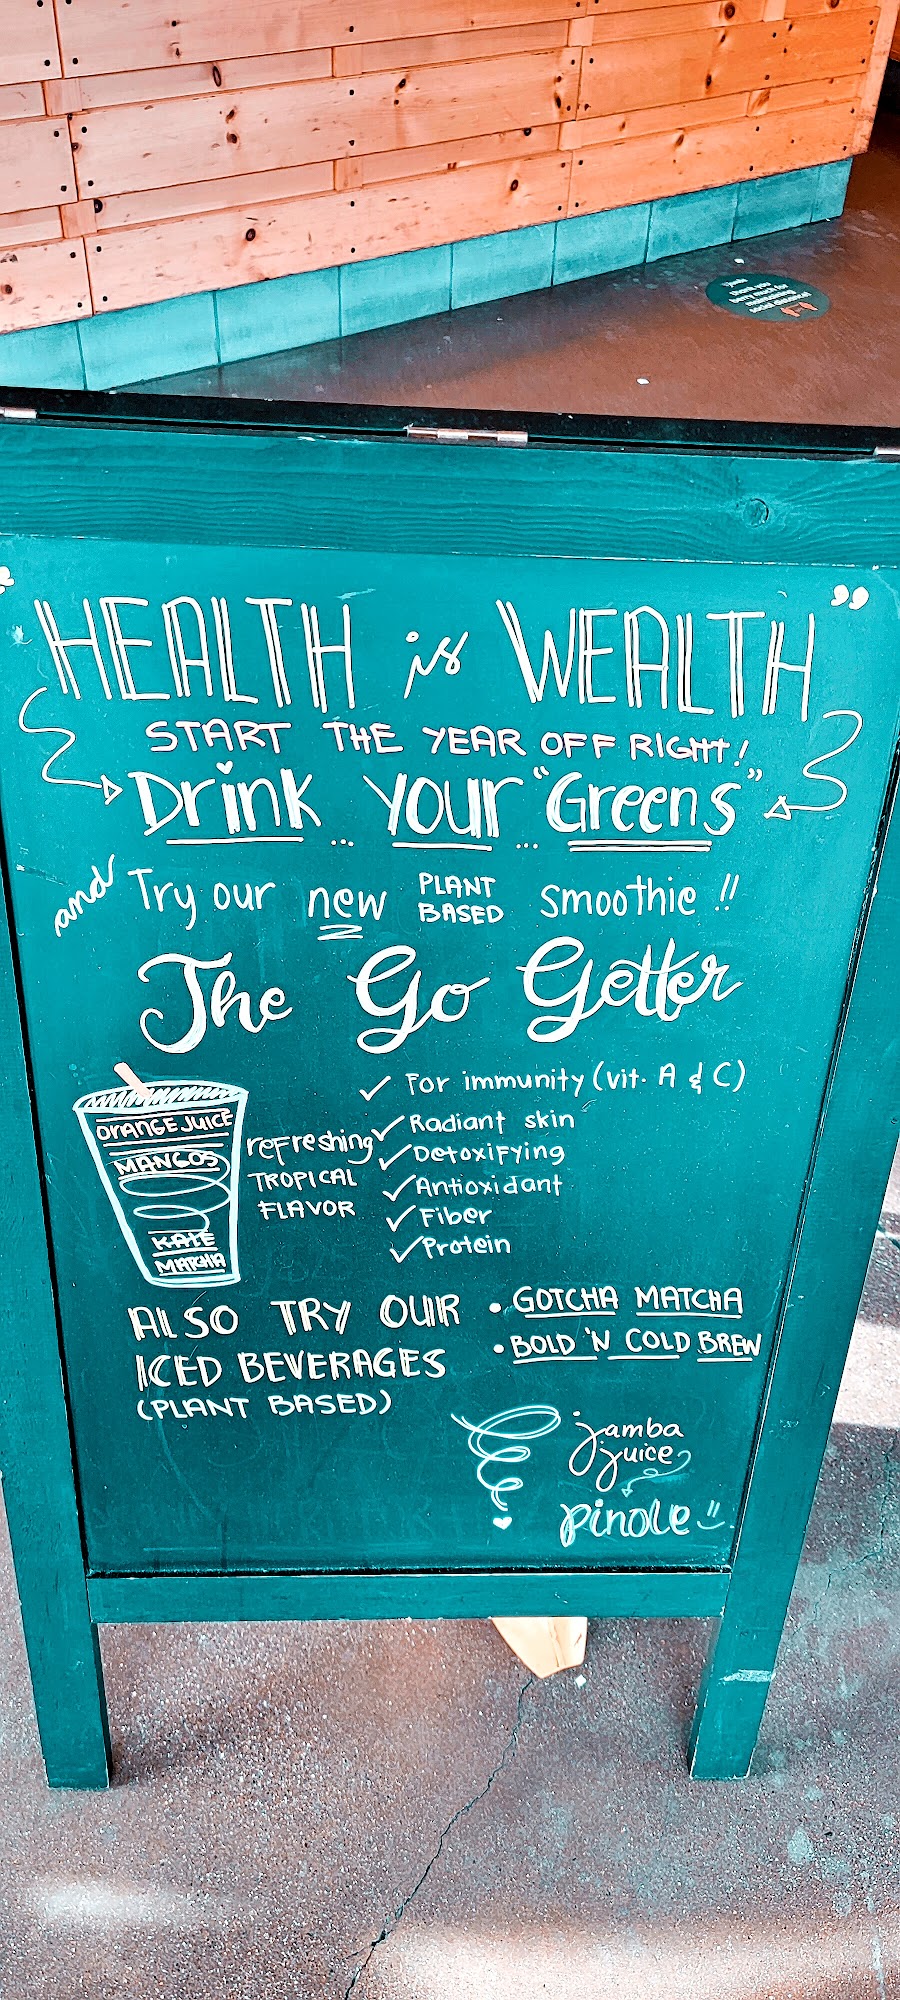 Jamba
thank you
berry much for
maintaining
social distance!
"HEALTH is WEALTH"
START THE YEAR OFF RIGHT!
Drink ... Your ... "Greens"
and Try our new PLANT BASED smoothie !!
The Go Getter
✓ For immunity (vit. A & C)
✓ Radiant skin
✓ Detoxifying
✓ Antioxidant
✓ Fiber
✓ Protein
refreshing
TROPICAL
FLAVOR
ORANGE JUICE
MANGOS
KALE
MATCHA
ALSO TRY OUR
ICED BEVERAGES
(PLANT BASED)
• GOTCHA MATCHA
• BOLD 'N COLD BREW
jamba
juice
pinole